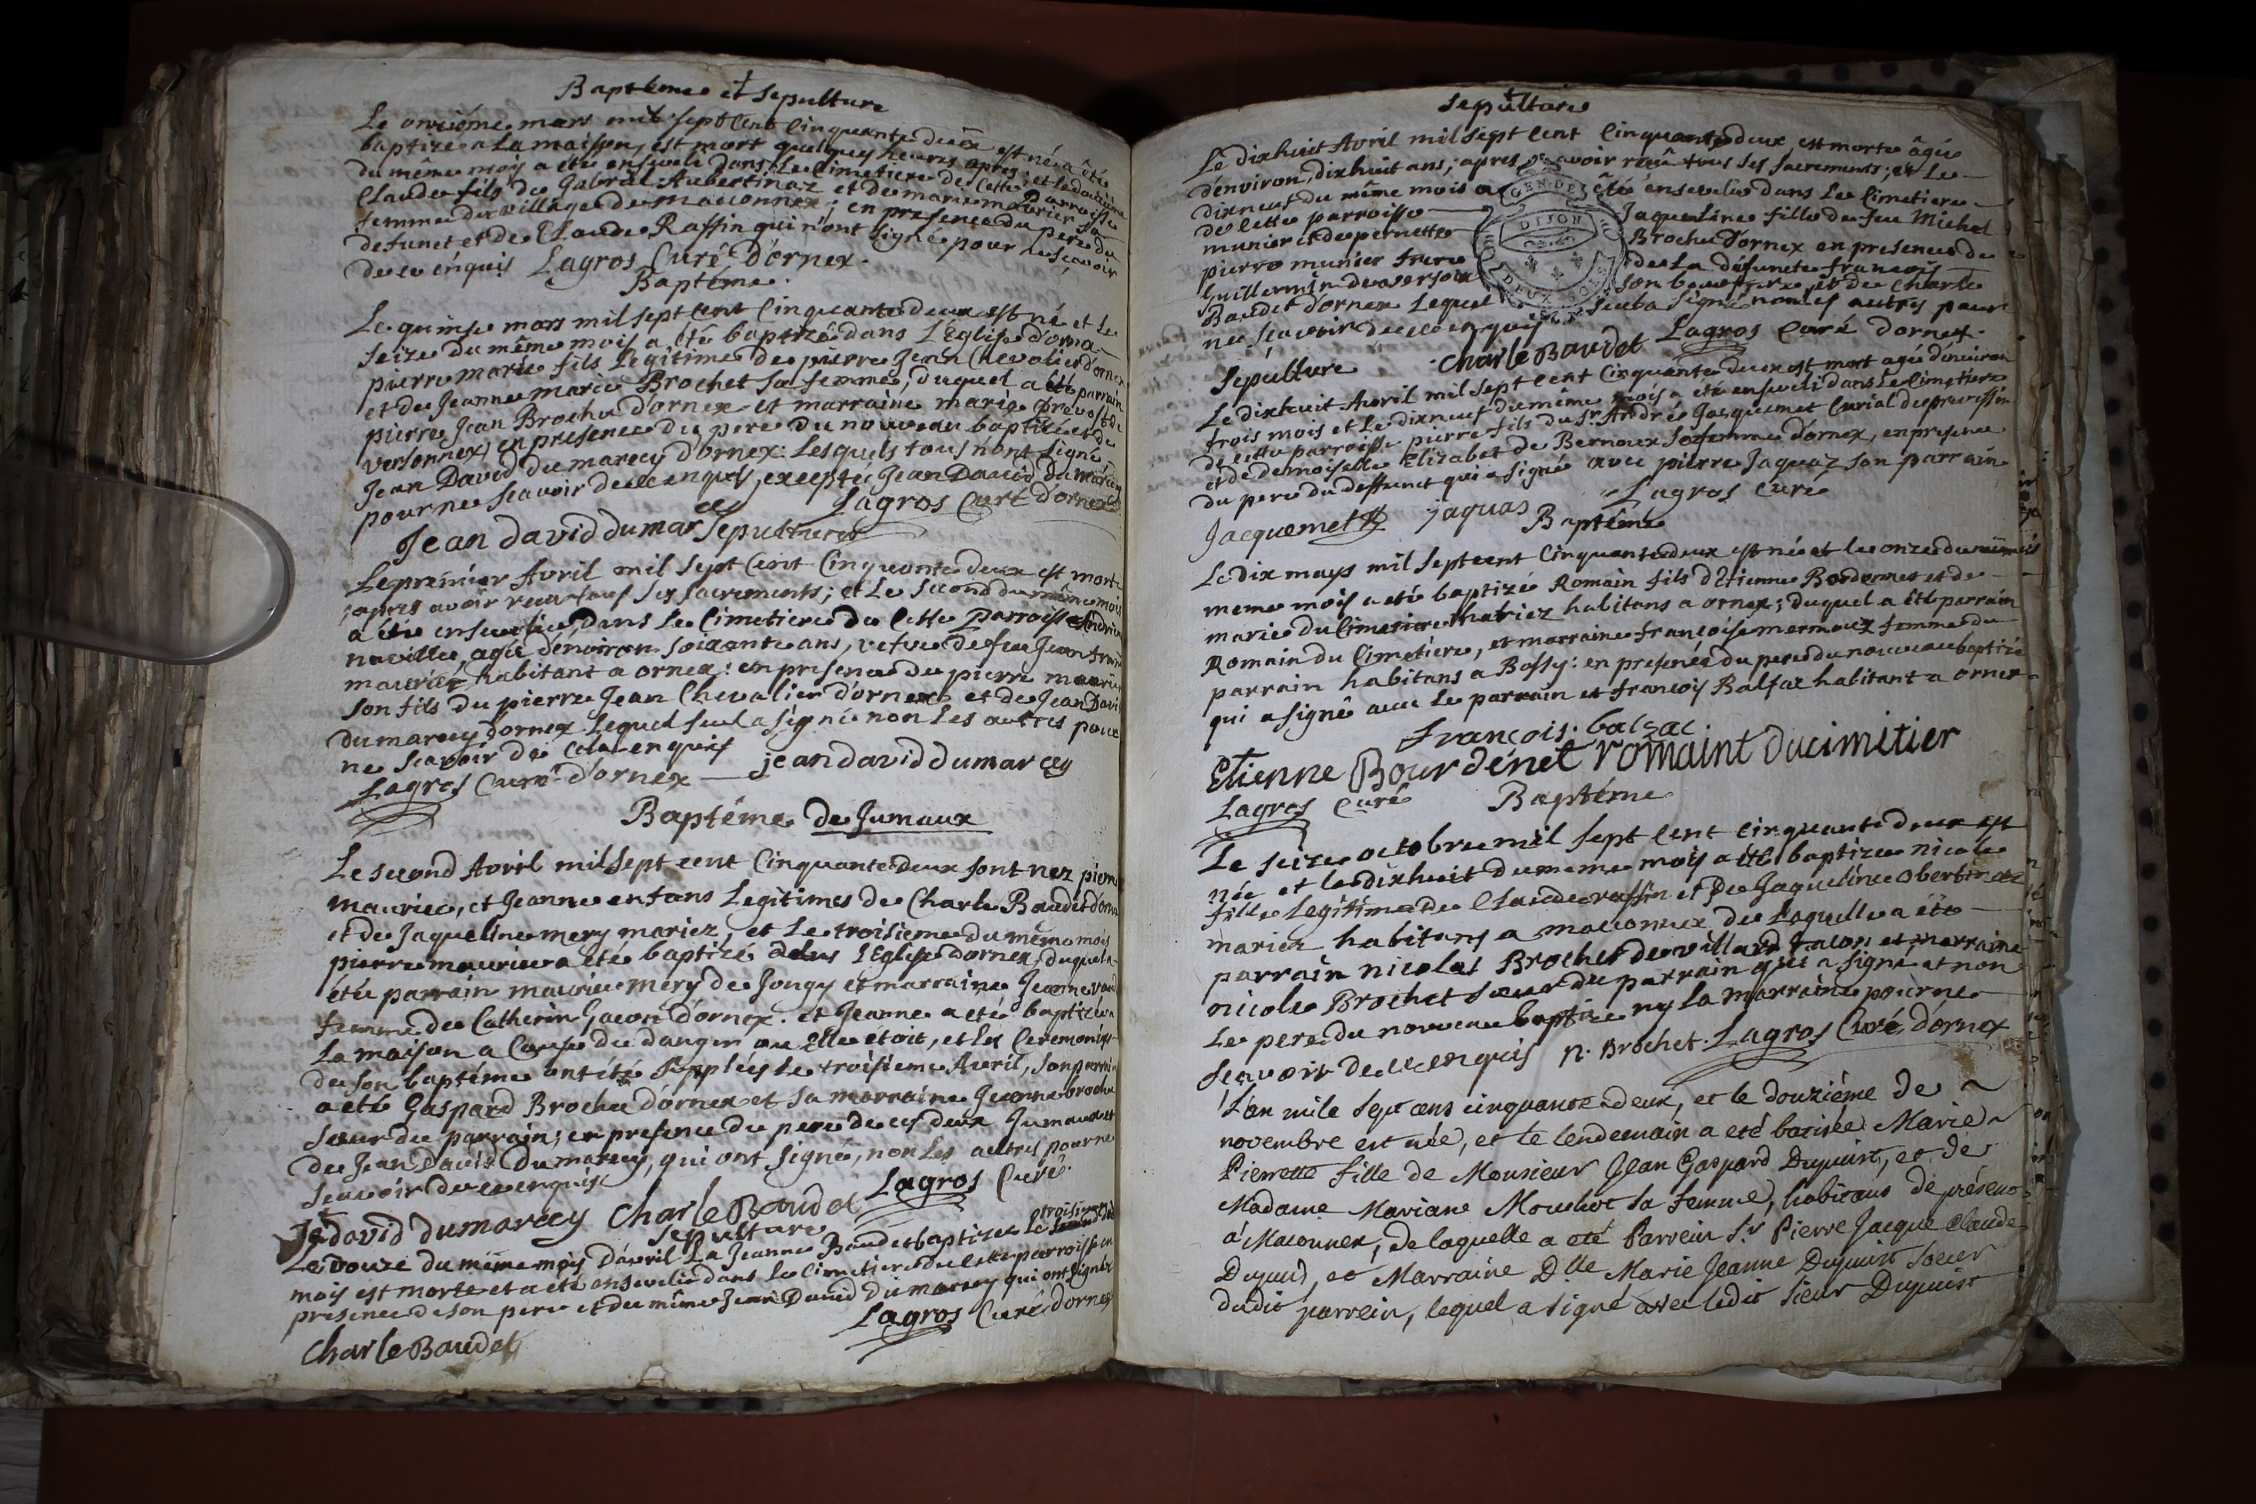 Baptême et Sepulture
Le onzième mars mil sept cent cinquante deux est né a été
baptizé a La maison, est mort quelques heures apres; et le douzième
du même mois a été enseveli dans Le Cimetiere de Cette Parroisse
Claude fils de Gabriel Aubertinaz et de marie maurier sa
femme du village de maconnex; en presence du pere du
defunct et de Claude Raffin qui n'ont signé pour ne sçavoir
de ce enquis Lagros Curé d'ornex.
Baptême.
Le quinse mars mil sept cent Cinquante deux est né et Le
seize du même mois a été baptizé dans L'Eglise d'ornex
pierre marie fils Legitime de pierre Jean Chevalier d'ornex
et de Jeanne marie Brochet sa femme, duquel a été parrain
pierre Jean Brochu d'ornex et marraine marie prevost de
versonnex, en presence du pere du nouveau baptizé et de
Jean David dumarcey d'ornex: Lesquels tous n'ont signé
pour ne scavoir de ce enquis, excepté Jean David Dumarcey
Lagros Curé d'ornex
Jean david dumarcey
Sepulture
Le premier Avril mil sept Cent Cinquante deux est morte
apres avoir receu tous ses sacrements; et Le second du même mois
a été ensevelie, dans Le Cimetiere de Cette Parroisse Andrie
naville, agée d'environ soixante ans, vefve de feu Jean francois
maurier habitant a ornex: en presence de pierre maurier
son fils du pierre Jean Chevalier d'ornex et de Jean David
dumarcey d'ornex Lequel seul a signé non Les autres pour
ne scavoir de cela enquis jean david dumarcey
Lagros Curé d'ornex
Baptême de Jumaux
Le second Avril mil Sept cent Cinquante deux sont nez pierre
maurice, et Jeanne enfans Legitimes de Charle Baudet d'ornex
et de Jaqueline mery mariez, et Le troisieme du même mois
pierre maurice a été baptizé dans L'Eglise d'ornex, duquel a
été parrain maurice mery de Jongy et marraine Jeanne
femme de Catherin Gacon d'ornex. et Jeanne a été baptizée a
La maison a Cause du danger ou elle étoit, et Les Ceremonies
de son baptême ont été supplées Le troisieme Avril, son parrain
a été Gaspard Brochu d'ornex et sa marraine Jeanne brochu
Sœur du parrain; en presence du pere de ces deux Jumaux et
de Jean David Dumarcey, qui ont signé, non Les autres pour ne
scavoir de ce enquis Lagros Curé.
Je david dumarcey Charle Baudet
Sepulture troisieme
Le douze du même mois d'avril La Jeanne Baudet baptizée Le second du
mois est morte et a été ensevelie dans Le Cimetiere de Cette parroisse en
presence de son pere et du même Jean David Dumarcey qui ont signés
Lagros Curé d'ornex
Charle Baudet
Sepulture
Le dixhuit Avril mil sept cent Cinquante deux est morte âgée
d'environ dixhuit ans; apres avoir receu tous ses sacrements; et Le
dixneuf du même mois a été ensevelie dans Le Cimetiere
de Cette parroisse Jaqueline fille de feu Michel
munier et de pernette Brochu d'ornex en presence de
pierre munier frere de La défuncte francois
Guillermin de versoix son beaufrere, et de Charle
Baudet d'ornex Lequel seul a signé non Les autres pour
ne scavoir de ce enquis Lagros Curé d'ornex.
Charle Baudet
Sepulture
Le dixhuit Avril mil sept cent Cinquante deux est mort agé d'environ
trois mois et Le dixneuf du même mois a été enseveli dans Le Cimetiere
de cette parroisse pierre fils du Sr. André Jacquemet Curial de pressin
et de demoiselle Elizabet de Bernoux sa femme d'ornex, en presence
du pere du deffunct qui a signé avec pierre Jaquaz son parrain
Jacquemet jaquas Lagros Curé
Baptême
Le dix mays mil sept cent Cinquante deux est né et Le onze du même mois
meme mois a été baptizé Romain fils d'Etienne Bordonnet et de
marie du Cimetiere mariez habitans a ornex; duquel a été parrain
Romain du Cimetière, et marraine françoise mermoux femme du
parrain habitans a Bossy: en presence du pere du nouveau baptizé
qui a signé avec Le parrain et francois Balsac habitant a ornex.
François. balsac.
Etienne Bourdénet romaint ducimitier
Lagros Curé Baptême
Le seize octobre mil sept cent cinquante deux est
née et le dixhuit du meme mois a été baptizée nicole
fille Legitime de Claude raffin et De Jaqueline Obertinaz
mariez habitans a maconnex de Laquelle a été
parrain nicolas Brochet de villard tacon et marraine
nicole Brochet sœur du parrain qui a signé et non
Le pere du nouveau baptizé ny La marraine pour ne
scavoir de ce enquis n. Brochet. Lagros Curé d'ornex
L'an mile sept cens cinquante deux, et le douziême de
novembre est née, et le lendemain a eté batisée Marie
Pierrette fille de Monsieur Jean Gaspard Dupuist, et de
Madame Mariane Mouchot sa femme, habitans de présent
à Maconnex, de laquelle a eté Parrein Sr Pierre Jacque Claude
Dupuis, et Marraine Dlle Marie Jeanne Dupuist Sœur
dudit parrein, lequel a signé avec ledit Sieur Dupuist
GEN. DE DIJON
DEUX SOLS